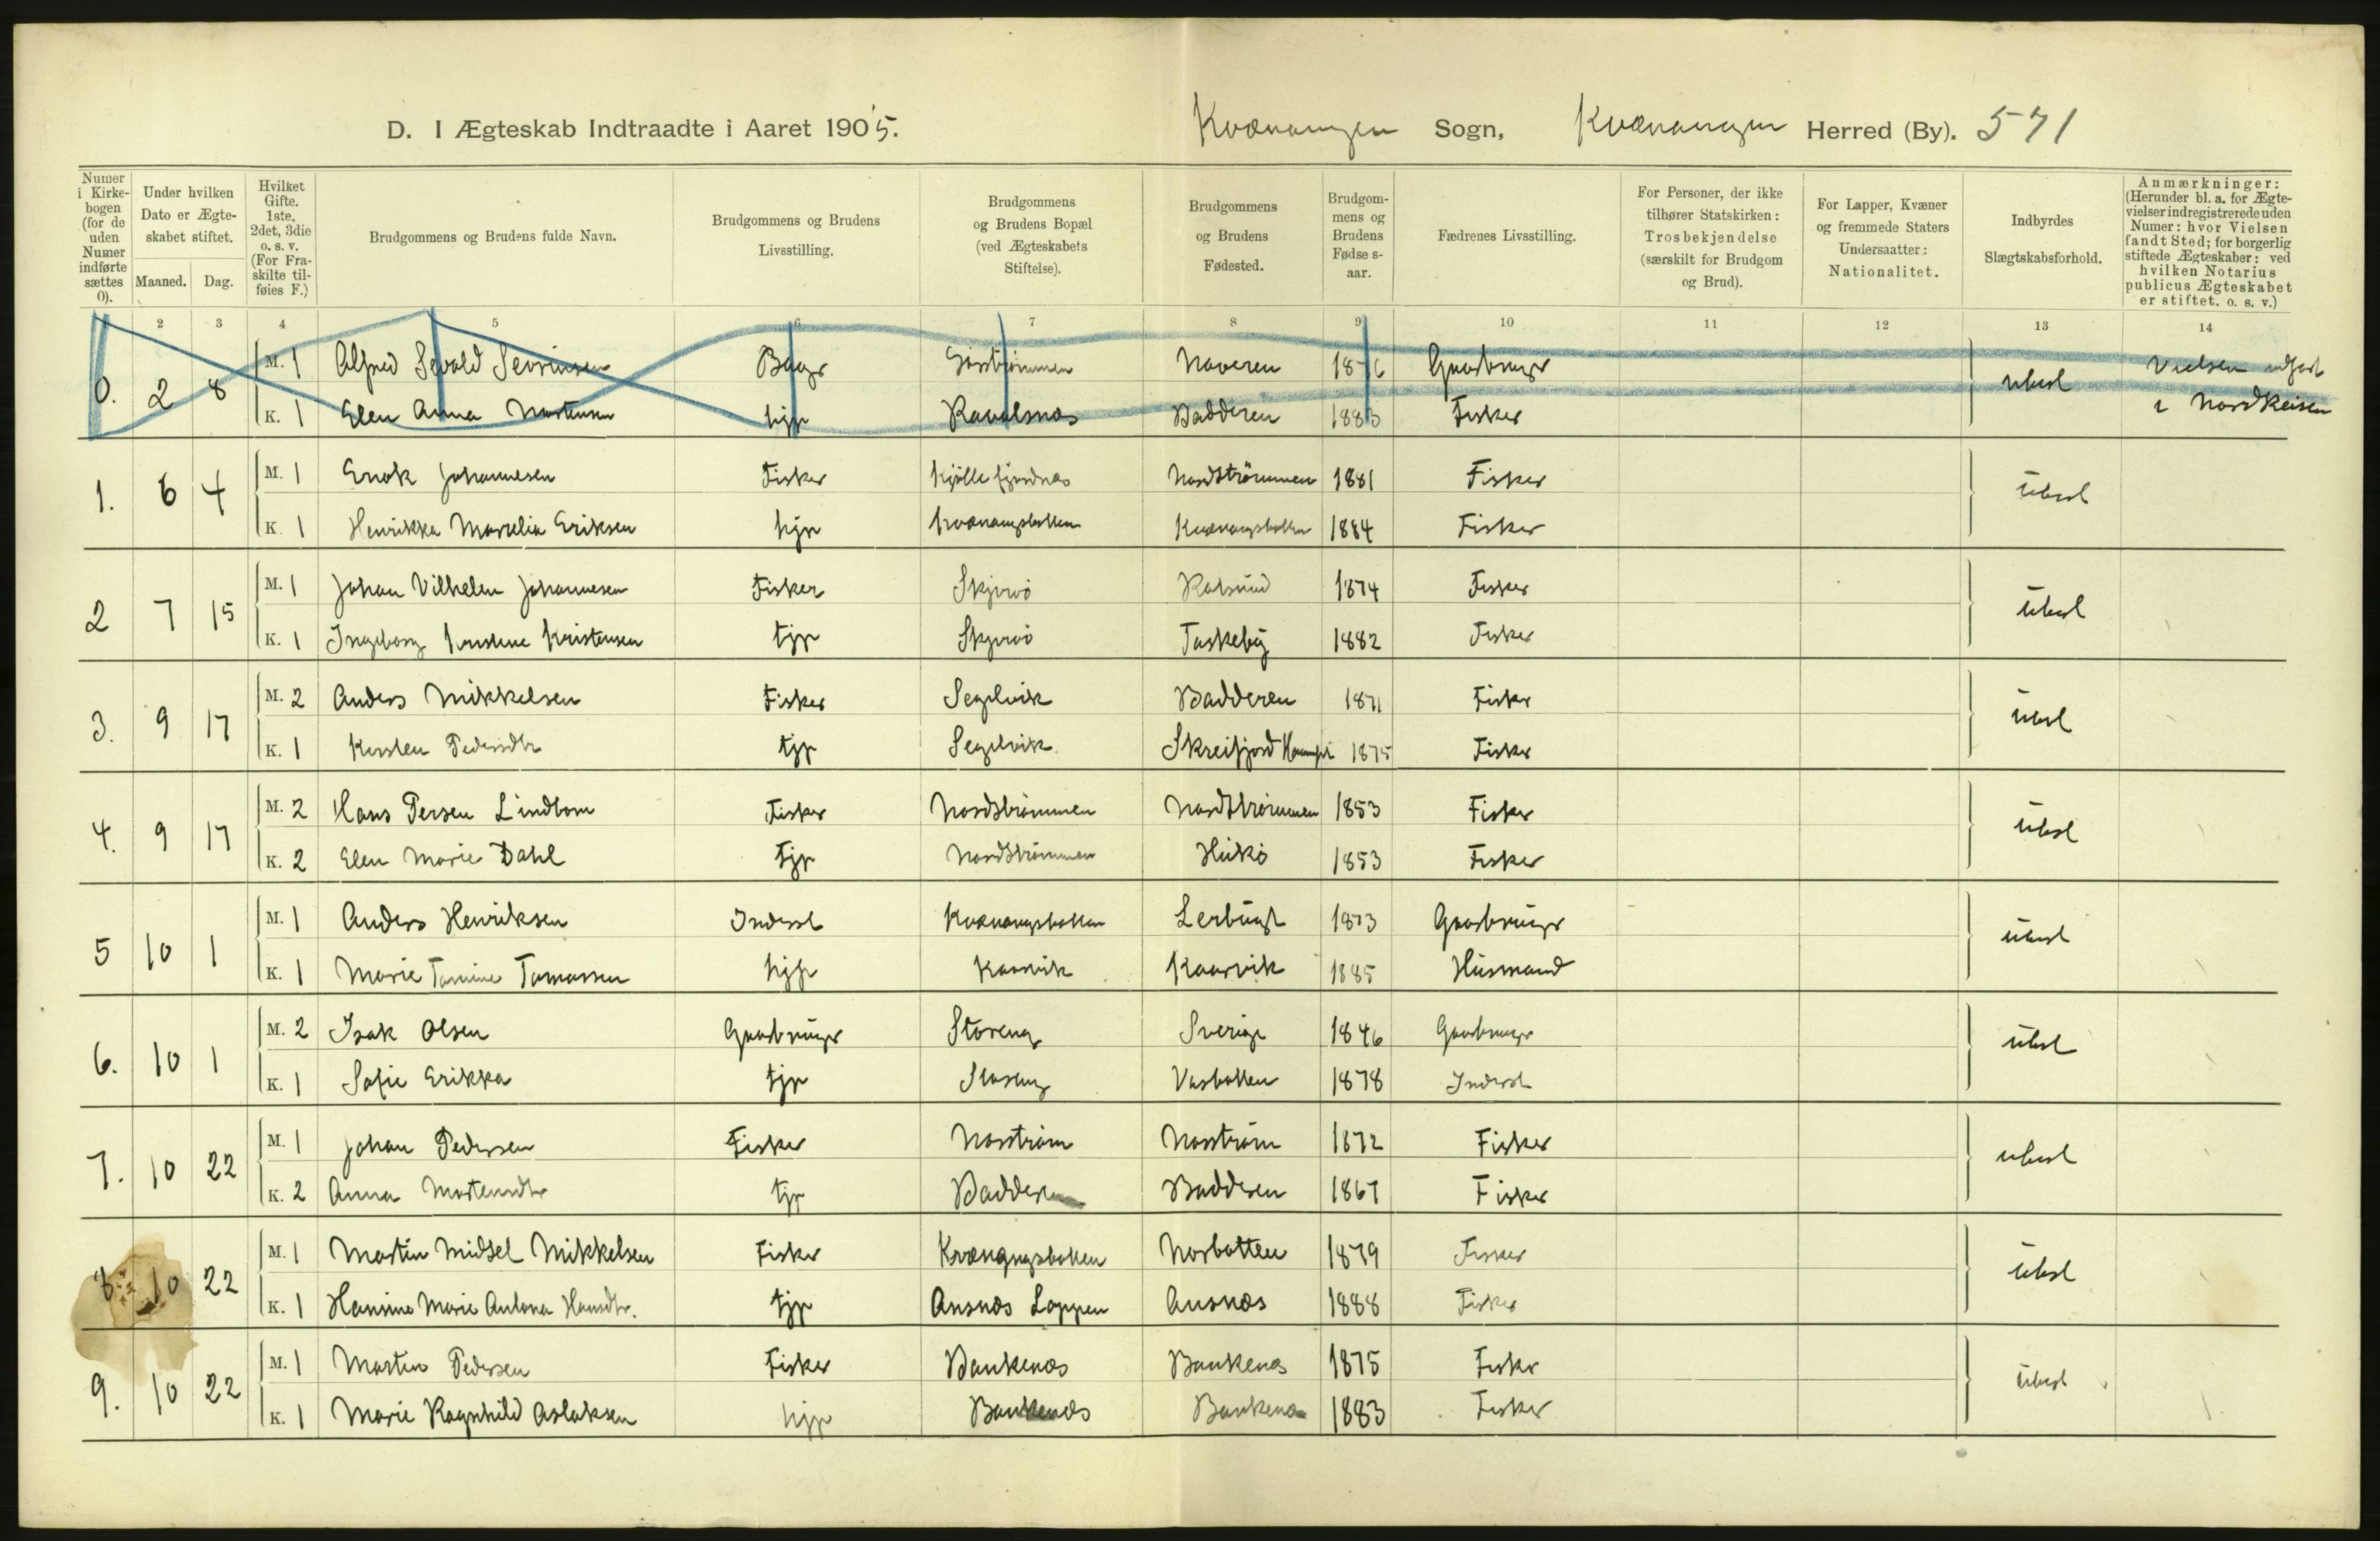 D. I Ægteskab Indtraadte i Aaret 1905. Kvænangen Sogn, Kvænangen Herred (By). 571
Numer i Kirkebogen (for de uden Numer indførte sættes 0).
Under hvilken Dato er Ægteskabet stiftet.
Maaned. Dag.
Hvilket Gifte. 1ste, 2det, 3die o. s. v. (For Fraskilte tilføies F.)
Brudgommens og Brudens fulde Navn.
Brudgommens og Brudens Livsstilling.
Brudgommens og Brudens Bopæl (ved Ægteskabets Stiftelse).
Brudgommens og Brudens Fødested.
Brudgommens og Brudens Fødselsaar.
Fædrenes Livsstilling.
For Personer, der ikke tilhører Statskirken: Trosbekjendelse (særskilt for Brudgom og Brud).
For Lapper, Kvæner og fremmede Staters Undersaatter: Nationalitet.
Indbyrdes Slægtskabsforhold.
Anmærkninger: (Herunder bl. a. for Ægtevielser indregistrerede uden Numer: hvor Vielsen fandt Sted; for borgerlig stiftede Ægteskaber: ved hvilken Notarius publicus Ægteskabet er stiftet. o. s. v.)
2 3 4 5 6 7 8 9 10 11 12 13 14
0. 2 8 M. 1 Alfred Sevald Sevrinsen Naveren 1876 Gaardbruger ubesl Vielsen udført
K. 1 Elen Anna Mortensen hjp Ravelsnæs Badderen 1883 Fisker i Nordreisen
1. 6 4 M. 1 Enok Johannesen Fisker Kjøllefjordnæs Nordströmmen 1881 Fisker übesl
K. 1 Henrikka Marselia Eriksen hjp Kvænangsbotten Kvænangsbotten 1884 Fisker
2 7 15 M. 1 Johan Vilhelm Johannesen Fisker Skjervö 1874 Fisker übesl
K. 1 Ingeborg Kristine Kristensen tjp Skjervö Taskeby 1882 Fisker
3. 9 17 M. 2 Anders Mikkelsen Fisker Segelvik Badderen 1871 Fisker übesl
K. 1 Kirsten Pedersdtr tjp Segelvik Skreifjord 1875 Fisker
4. 9 17 M. 2 Hans Persen Lindbom Fisker Nordströmmen Nordströmmen 1853 Fisker übesl
K. 2 Elen Marie Dahl tjp Nordströmmen Hükö 1853 Fisker
5 10 1 M. 1 Anders Henriksen Inderst Kvænangsbotten Lerbügt 1873 Gaardbrüger übesl
K. 1 Marie Tomine Tomassen hjp Kaarvik Kaarvik 1885 Hüsmand
6. 10 1 M. 2 Isak Olsen Gaardbrüger Storeng Sverige 1846 Gaardbruger übesl
K. 1 Sofie Erikka tjp Storeng Vasbotten 1878 Inderst
7. 10 22 M. 1 Johan Pedersen Fisker Norström Norström 1872 Fisker ubesl
K. 2 Anna Mortensdtr tjp Badderen Badderen 1867 Fisker
8 10 22 M. 1 Martin Midsel Mikkelsen Fisker Kvænangsbotten Norbotten 1879 Fisker übesl
K. 1 Hansine Marie Antona Hansdtr. tjp Ansnæs Loppen Ansnæs 1888 Fisker
9. 10 22 M. 1 Martin Pedersen Fisker Bankenæs Bankenæs 1875 Fisker übesl
K. 1 Marie Ragnhild Aslaksen hjp Bankenæs Bankenæs 1883 Fisker